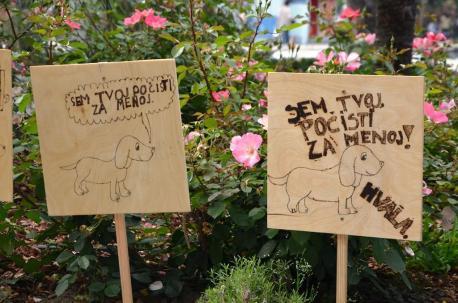 SEM TVOJ POČISTI
ZA MENOJ.
SEM TVOJ,
POČISTI
ZA MENOJ!
HVALA,